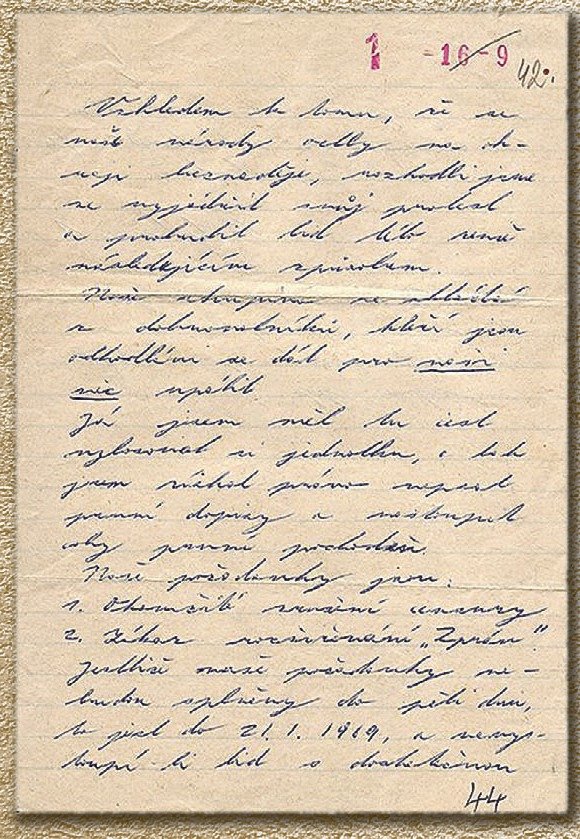 1 -16-9
42.
Vzhledem k tomu, že se
naše národy octly na ok-
raji beznaděje, rozhodli jsme
se vyjádřit svůj protest
a probudit lid této země
následujícím způsobem.
Naše skupina se skládá
z dobrovolníků, kteří jsou
odhodláni se dát pro naši
věc upálit
Já jsem měl tu čest
vylosovat si jedničku, a tak
jsem získal právo napsat
první dopisy a nastoupit
coby první pochodeň.
Naše požadavky jsou:
1. Okamžité zrušení cenzury
2. Zákaz rozšiřování „Zpráv".
Jestliže naše požadavky ne-
budou splněny do pěti dnů,
to jest do 21. 1. 1969, a nevys-
toupí-li lid s dostatečnou
44